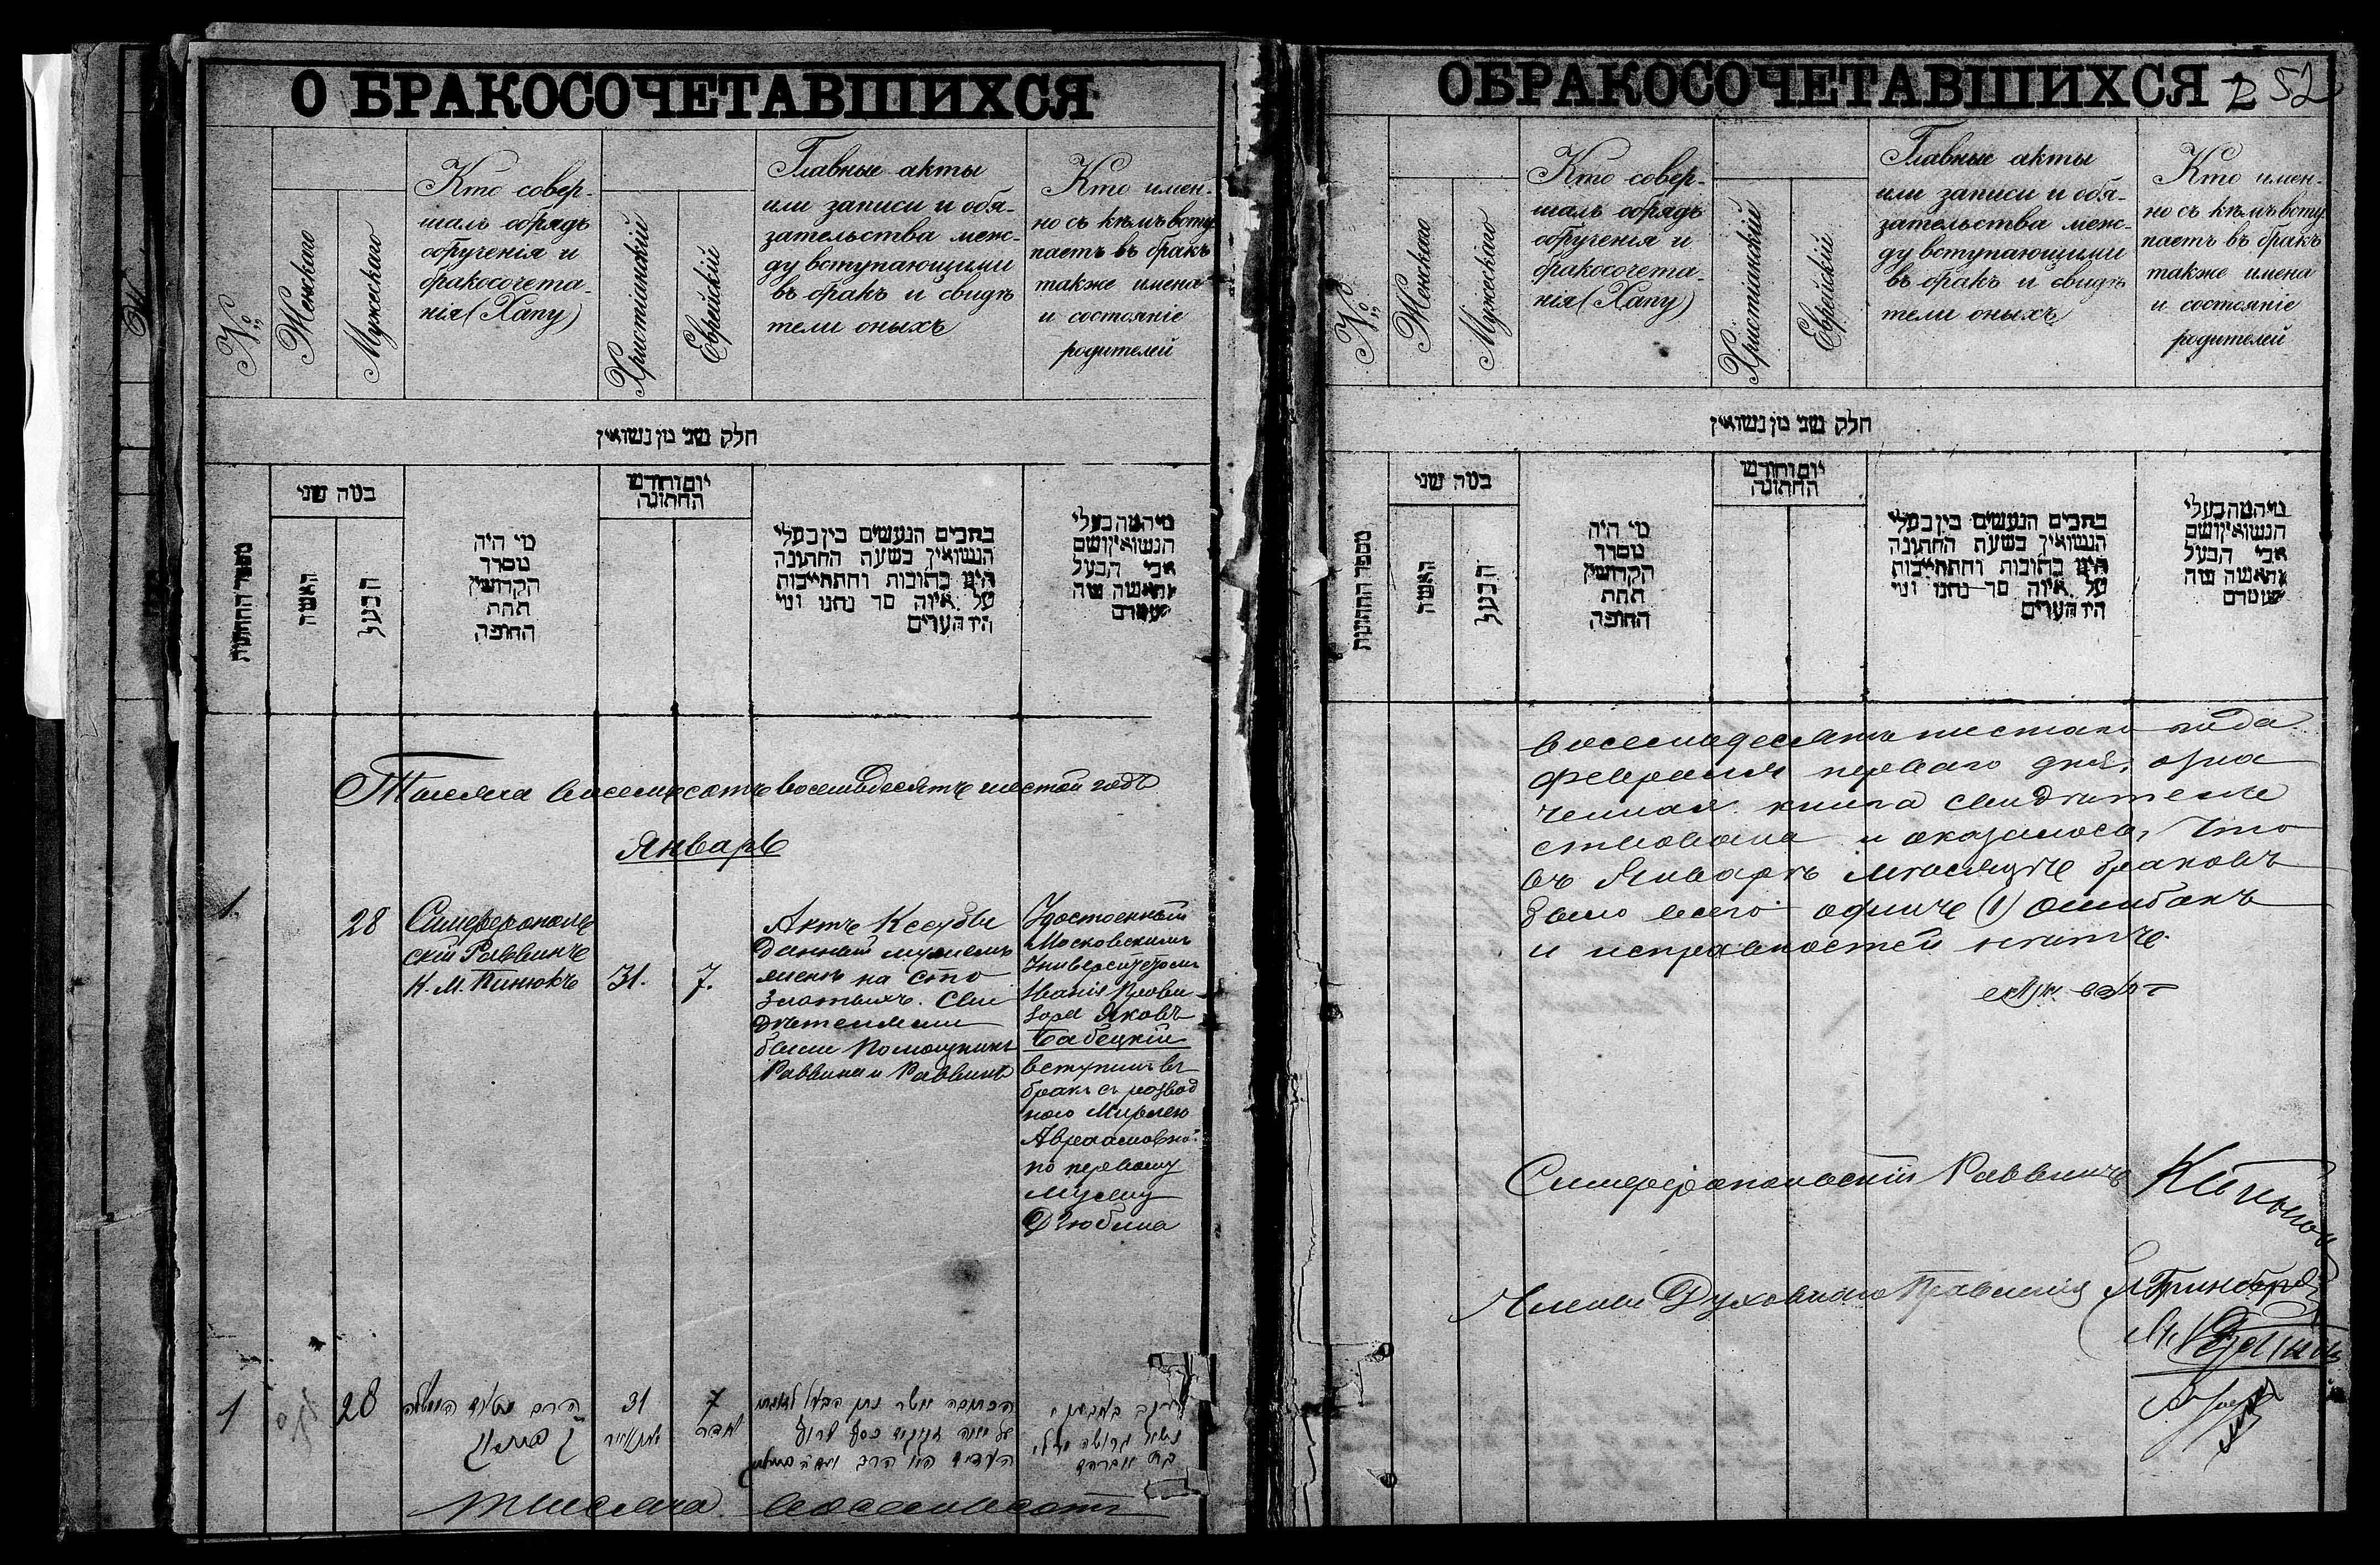 О БРАКОСОЧЕТАВШИХСЯ
№
Женскаго
Мужескаго
Кто совер-
шалъ обрядъ
обрученія и
бракосочета-
нія (Хапу)
Христіанскій
Еврейскій
Главные акты
или записи и обя-
зательства меж-
ду вступающими
въ бракъ и свидѣ
тели оныхъ
Кто имен-
но съ кѣмъ всту
паетъ въ бракъ
также имена
и состояніе
родителей
חלק שני מן נשואין
מספר החתונות
במה שני
האשה
הבעל
מי היה
מסדר
הקדושין
תחת
החופה
יום וחודש
החתונה
כתבים הנעשים בין בעלי
הנשואין בשעת החתונה
היינו כתובות והתחייבות
על איזה סך נתנו ומי
היו העדים
מי המה בעלי
הנשואין ושם
אבי הבעל
והאשה ומה
מעמדם
Тысяча восемьсотъ восемьдесятъ шестой годъ
Январь
1.
28
Симферополь
скій Раввинъ
К. М. Пинюкъ
31.
7.
Актъ Ксубы
данный мужемъ
женѣ на сто
злотыхъ. Сви
дѣтелями
были Помощникъ
Раввина и Раввинъ
Удостоенный
Московскимъ
Университетомъ
званія Прови
зора Яковъ
Бабецкій
вступилъ въ
бракъ съ развод
ною Мирлею
Авраамовной
по первому
мужу
Дюбина
1
28
הרב
31
יאנואר
7
שבט
הכתובה אשר נתן הבעל לאשתו
על מאה זהובים כסף
העדים היו הרב
נשא גרושה
בת אברהם
тысяча восемьсотъ
О БРАКОСОЧЕТАВШИХСЯ
2 52
№
Женскаго
Мужескаго
Кто совер-
шалъ обрядъ
обрученія и
бракосочета-
нія (Хапу)
Христіанскій
Еврейскій
Главные акты
или записи и обя-
зательства меж-
ду вступающими
въ бракъ и свидѣ
тели оныхъ
Кто имен-
но съ кѣмъ всту
паетъ въ бракъ
также имена
и состояніе
родителей
חלק שני מן נשואין
מספר החתונות
במה שני
האשה
הבעל
מי היה
מסדר
הקדושין
תחת
החופה
יום וחודש
החתונה
כתבים הנעשים בין בעלי
הנשואין בשעת החתונה
היינו כתובות והתחייבות
על איזה סך נתנו ומי
היו העדים
מי המה בעלי
הנשואין ושם
אבי הבעל
והאשה ומה
מעמדם
восемьдесятъ шестаго года
февраля перваго дня, озна
ченная книга свидѣтель
ствована и оказалось, что
въ Январѣ мѣсяцѣ браковъ
было всего одинъ (1) ошибокъ
и исправностей нѣтъ.
Симферопольскій Раввинъ
Члены Духовнаго Правленія